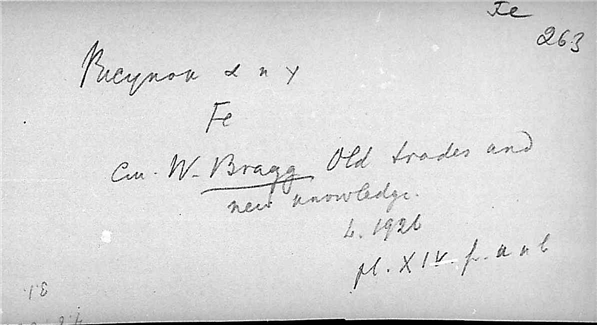 Fe
263
Рисунок α и γ
Fe
см. W. Bragg Old trades and
new knowledge.
L. 1926
pl. XIV. f. a и b